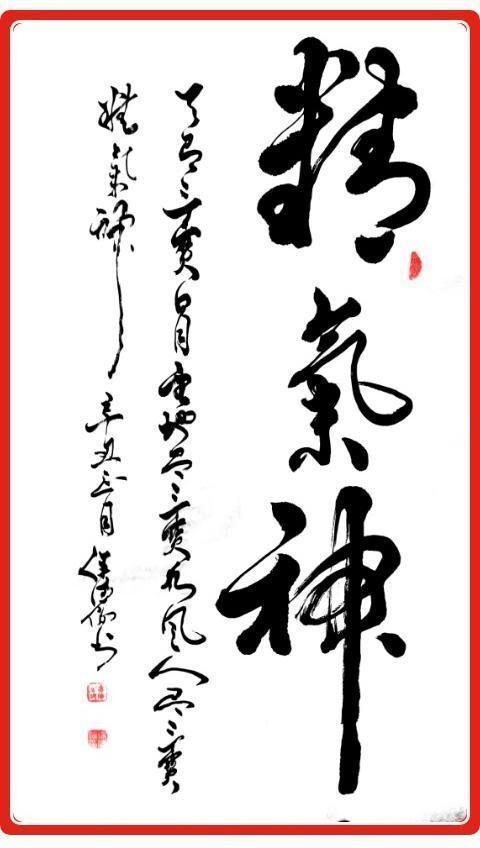 精氣神
天有三寶日月星地有三寶水火風人有三寶
精氣神 辛丑三月 书